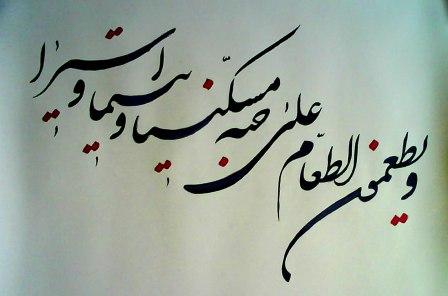 ویطعمون الطعام علی حبه مسکینا و یتیما و اسیرا